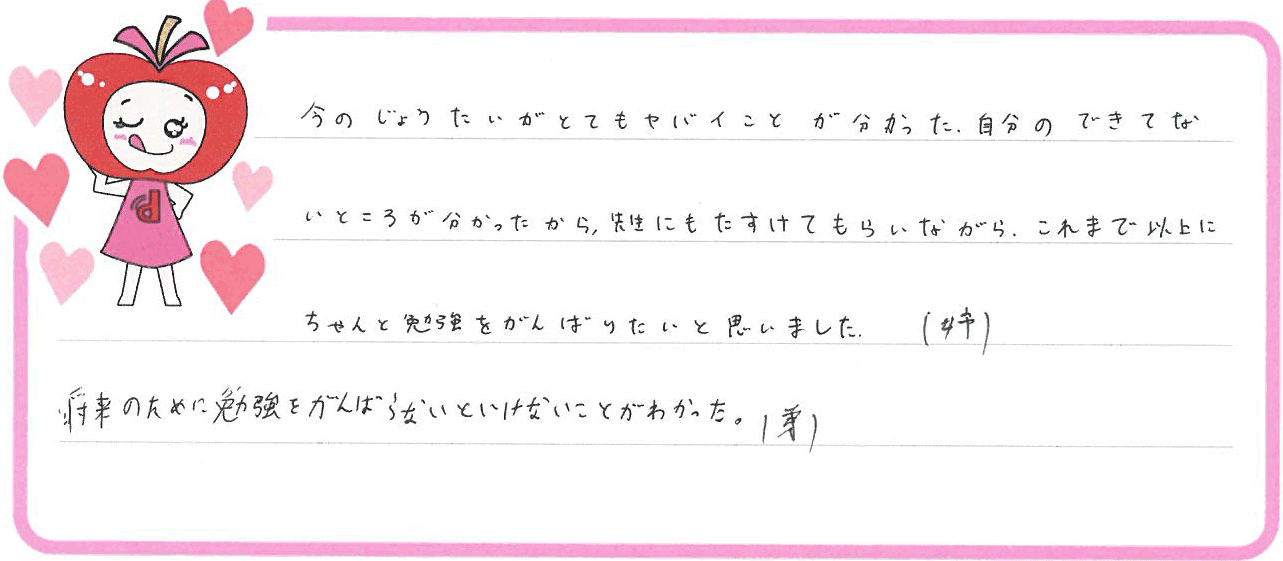 今のじょうたいがとてもヤバイことが分かった.自分のできてな
いところが分かったから,先生にもたすけてもらいながら.これまで以上に
ちゃんと勉強をがんばりたいと思いました. (姉)
将来のために勉強をがんばらないといけないことがわかった。(弟)